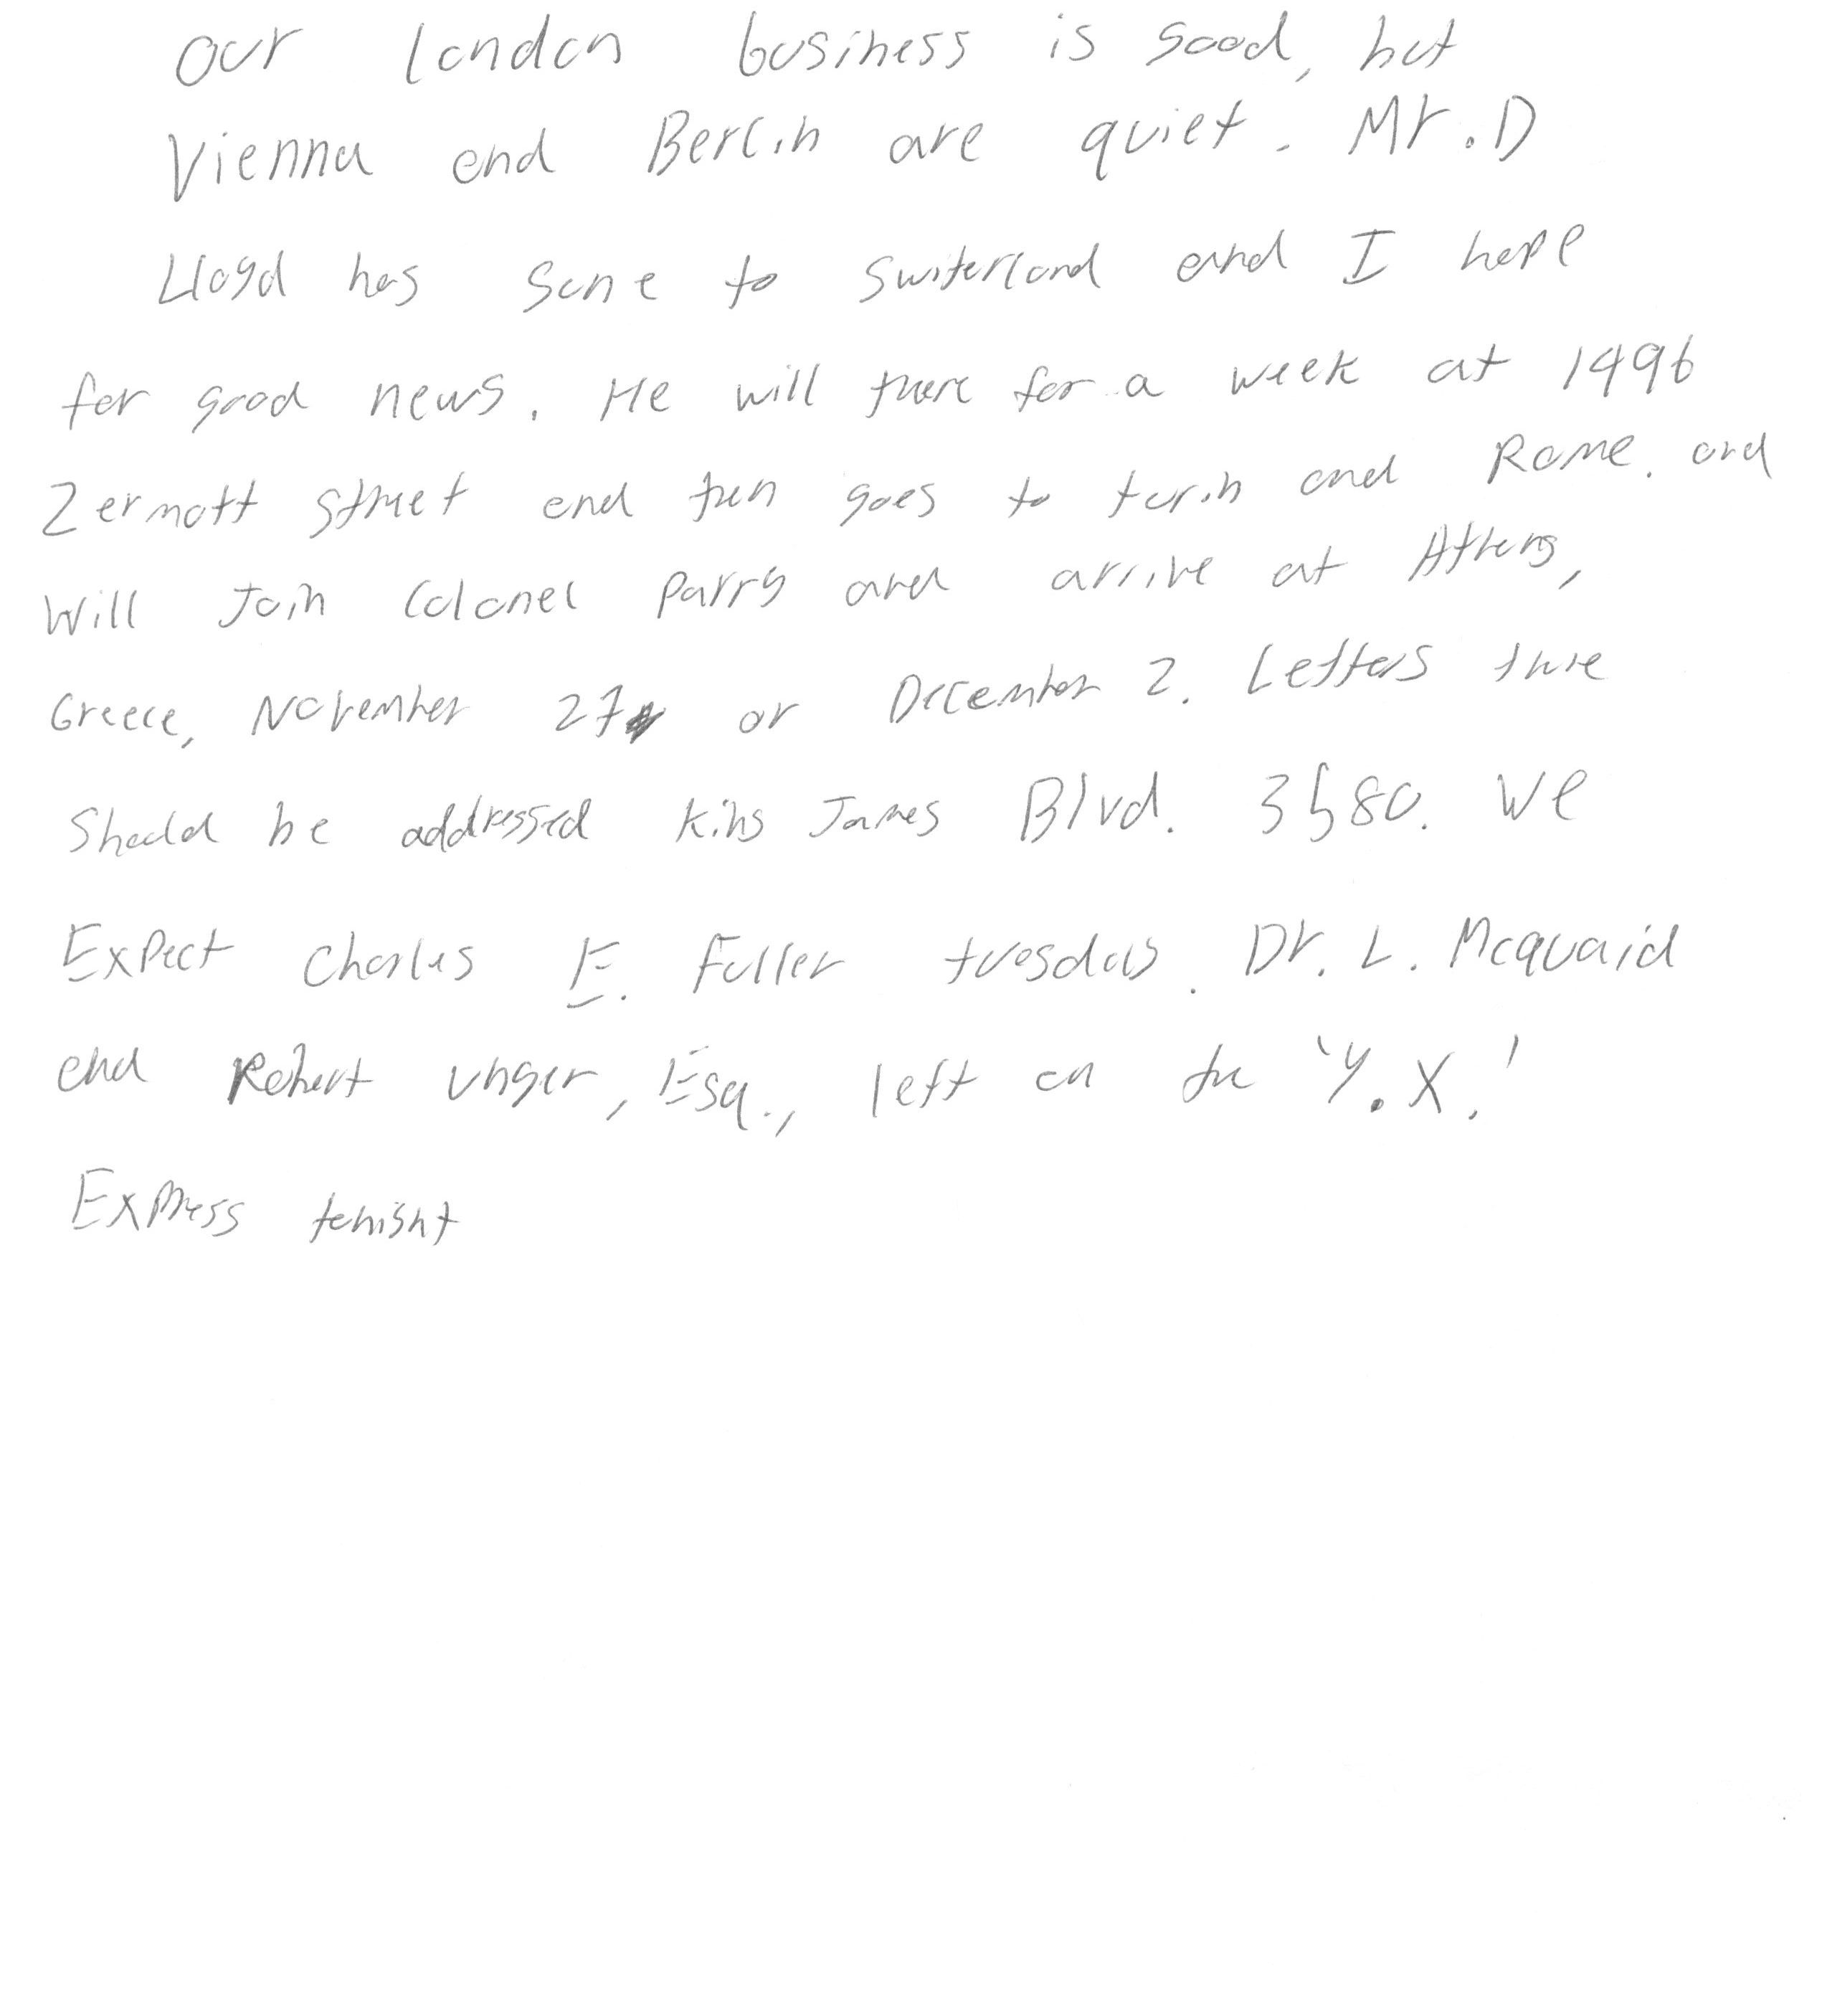 Our london business is good, but
Vienna and Berlin are quiet. Mr. D
Lloyd has gone to Switerland and I hope
for good news. He will there for a week at 1496
Zermott street and then goes to turin and Rome. and
Will Join Colonel Parry and arrive at Athens,
Greece, November 27 or December 2. Letters there
Should be addressed King James Blvd. 3580. We
Expect Charles E. Fuller tuesday. Dr. L. Mcquaid
and Robert Unger, Esq., left on the 'Y.X.'
Express tonight